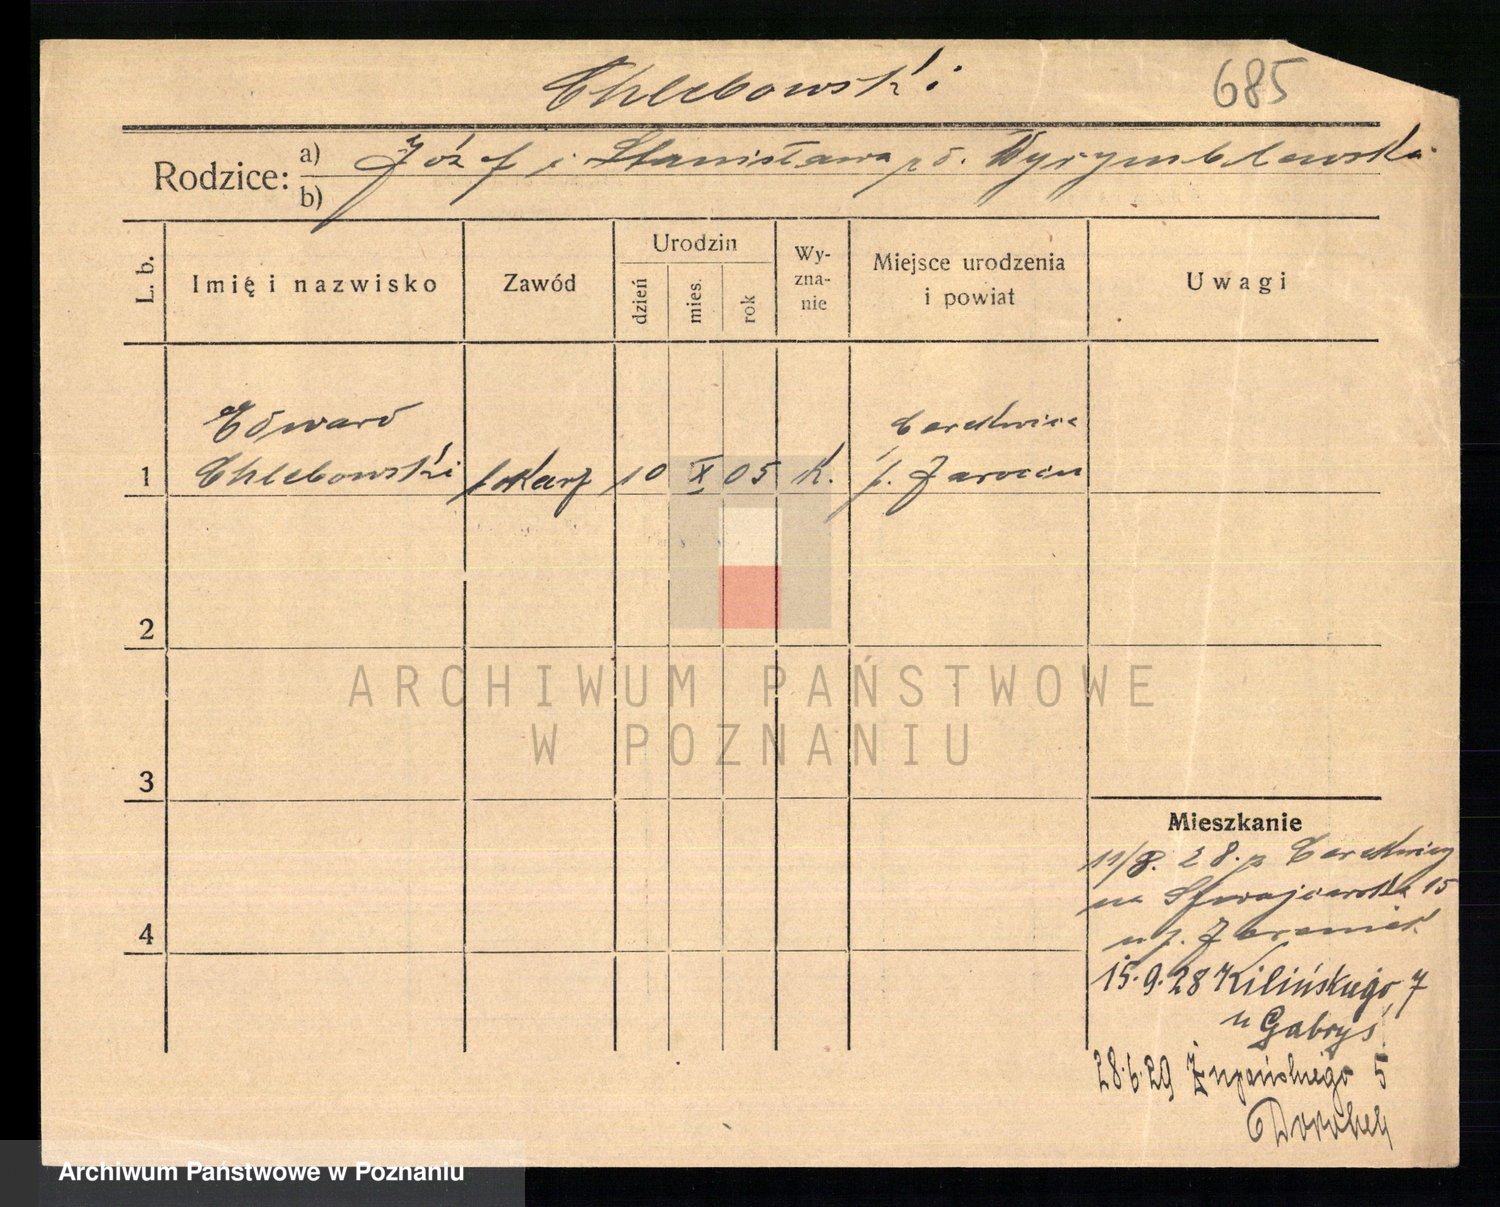 Chlebowski
685
Rodzice:
a) Józef i Stanisława
b)
L. b.
Imię i nazwisko
Zawód
Urodzin
dzień
mies.
rok
Wy-
zna-
nie
Miejsce urodzenia
i powiat
Uwagi
1
Edward
Chlebowski
10
X
05
K.
Cerekwica
p. Jarocin
2
3
4
ARCHIWUM PAŃSTWOWE
W POZNANIU
Mieszkanie
11/8. 28. p Cerekwicy
na Szwajcarska 15
u p.
15.9.28 Kilińskiego 7
u Gabryś
28.6.29 Żupańskiego 5
Archiwum Państwowe w Poznaniu